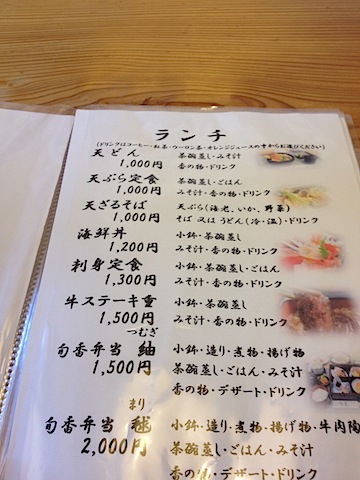 ランチ
(ドリンクはコーヒー・紅茶・ウーロン茶・オレンジジュースの中からお選びください)
天どん 茶碗蒸し・みそ汁
1,000円 香の物・ドリンク
天ぷら定食 茶碗蒸し・ごはん
1,000円 みそ汁・香の物・ドリンク
天ざるそば 天ぷら(海老、いか、野菜)
1,000円 そば又はうどん(冷・温)・ドリンク
海鮮丼 小鉢・茶碗蒸し
1,200円 みそ汁・香の物・ドリンク
刺身定食 小鉢・茶碗蒸し・ごはん
1,300円 みそ汁・香の物・ドリンク
牛ステーキ重 小鉢・茶碗蒸し
1,500円 みそ汁・香の物・ドリンク
つむぎ
旬香弁当 紬 小鉢・造り・煮物・揚げ物
1,500円 茶碗蒸し・ごはん・みそ汁
香の物・デザート・ドリンク
まり
旬香弁当 毬 小鉢・造り・煮物・揚げ物・牛肉陶
2,000円 茶碗蒸し・ごはん・みそ汁
香の物・デザート・ドリンク